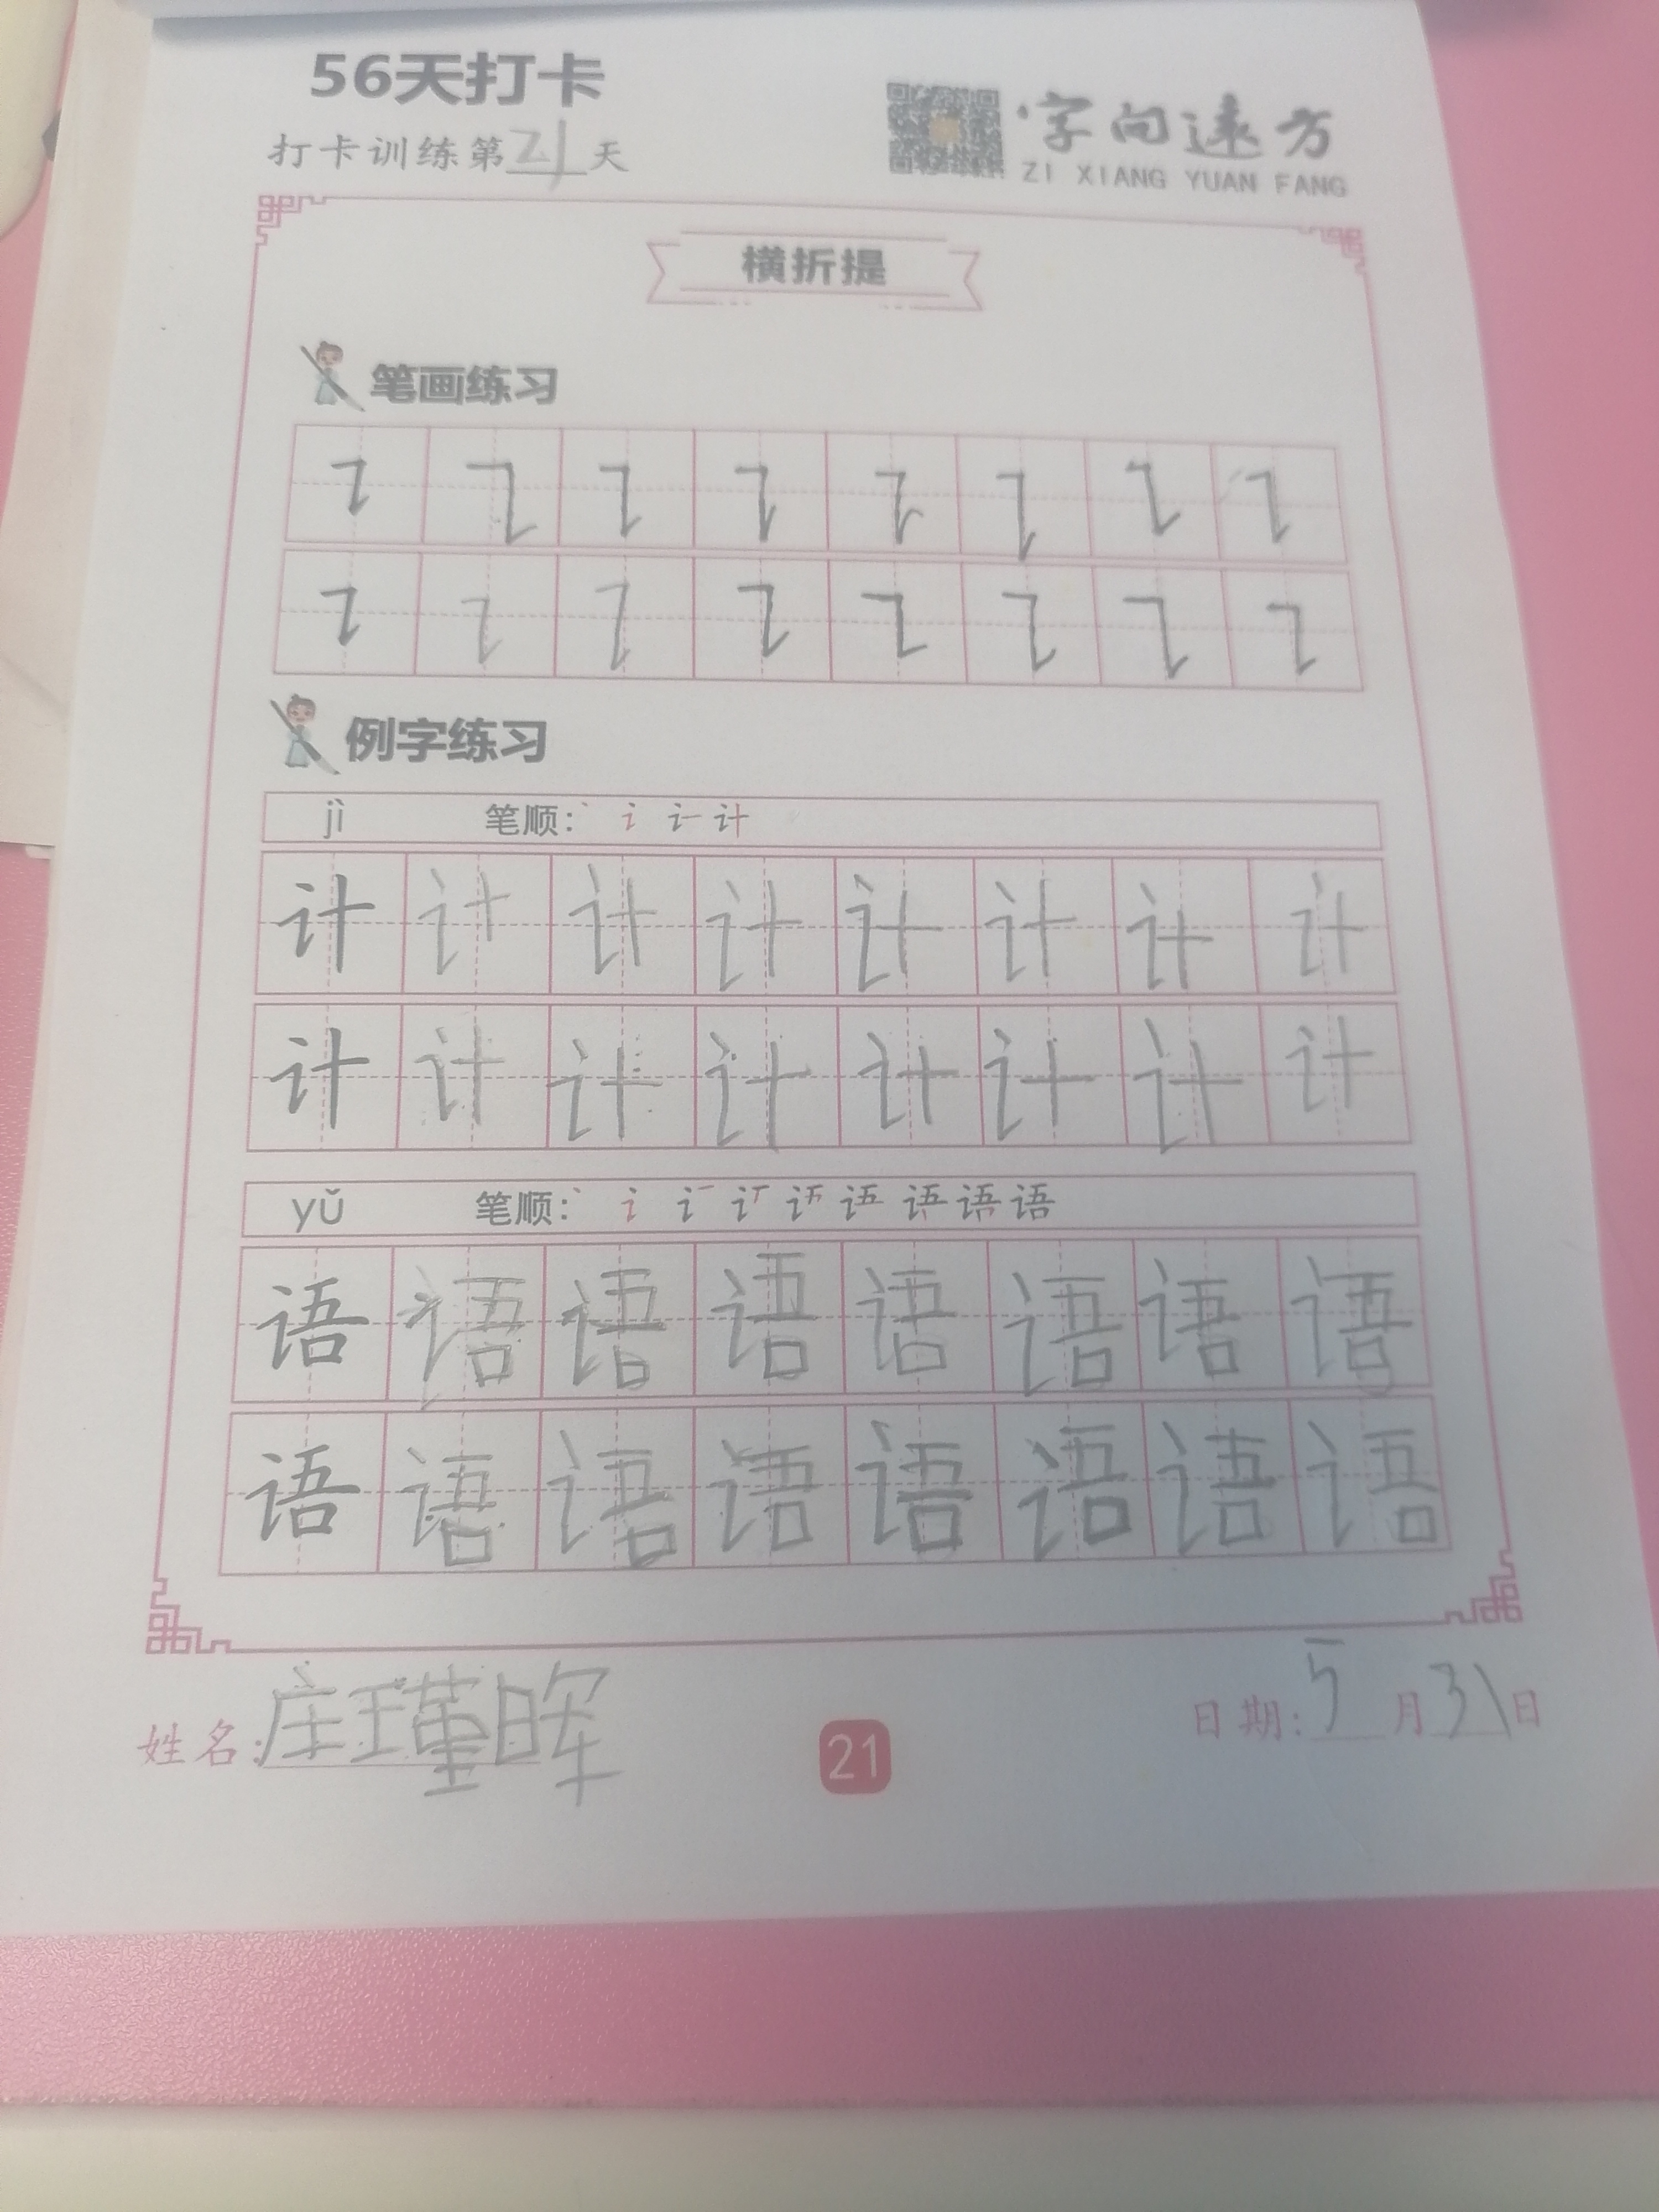 56天打卡
打卡训练第21天
字向远方
ZI XIANG YUAN FANG
横折提
笔画练习
例字练习
jì 笔顺: 计
计 计 计 计 计 计 计 计
计 计 计 计 计 计 计 计
yǔ 笔顺: 语
语 语 语 语 语 语 语 语
语 语 语 语 语 语 语 语
姓名:庄瑾晖
日期:5月31日
21